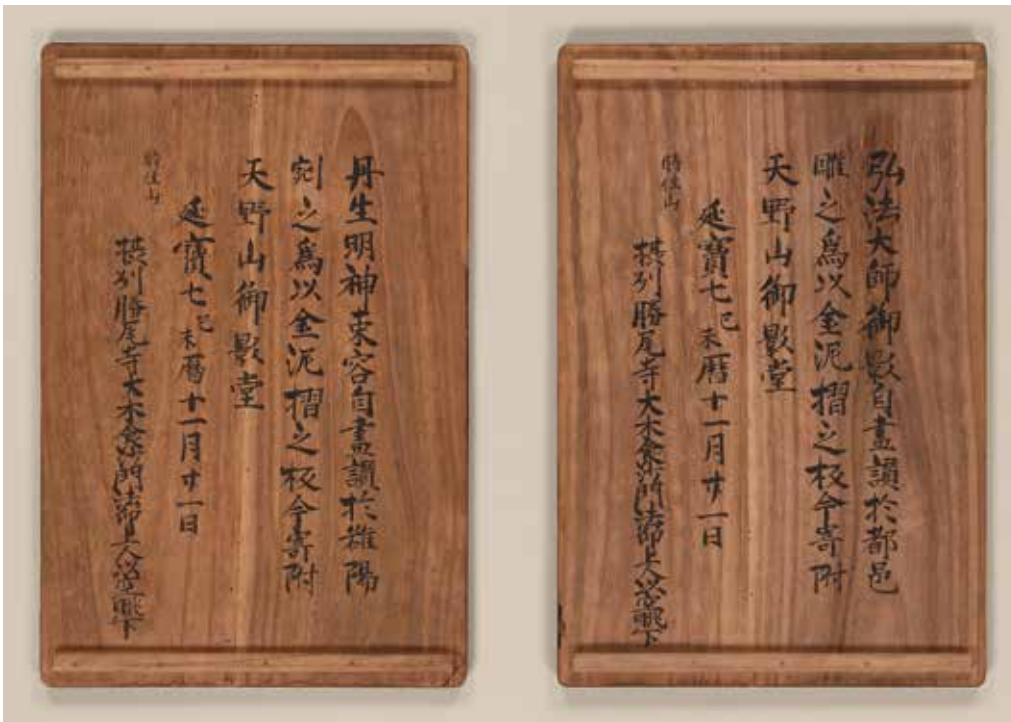 弘法大師御影自畫讃於都邑
雕之爲以金泥摺之板令寄附
天野山御影堂
延寶七己未曆十一月廿一日
時住山
勝尾寺大木食
丹生明神容自畫讃於雒陽
刻之爲以金泥摺之板令寄附
天野山御影堂
延寶七己未曆十一月廿一日
時住山
勝尾寺大木食